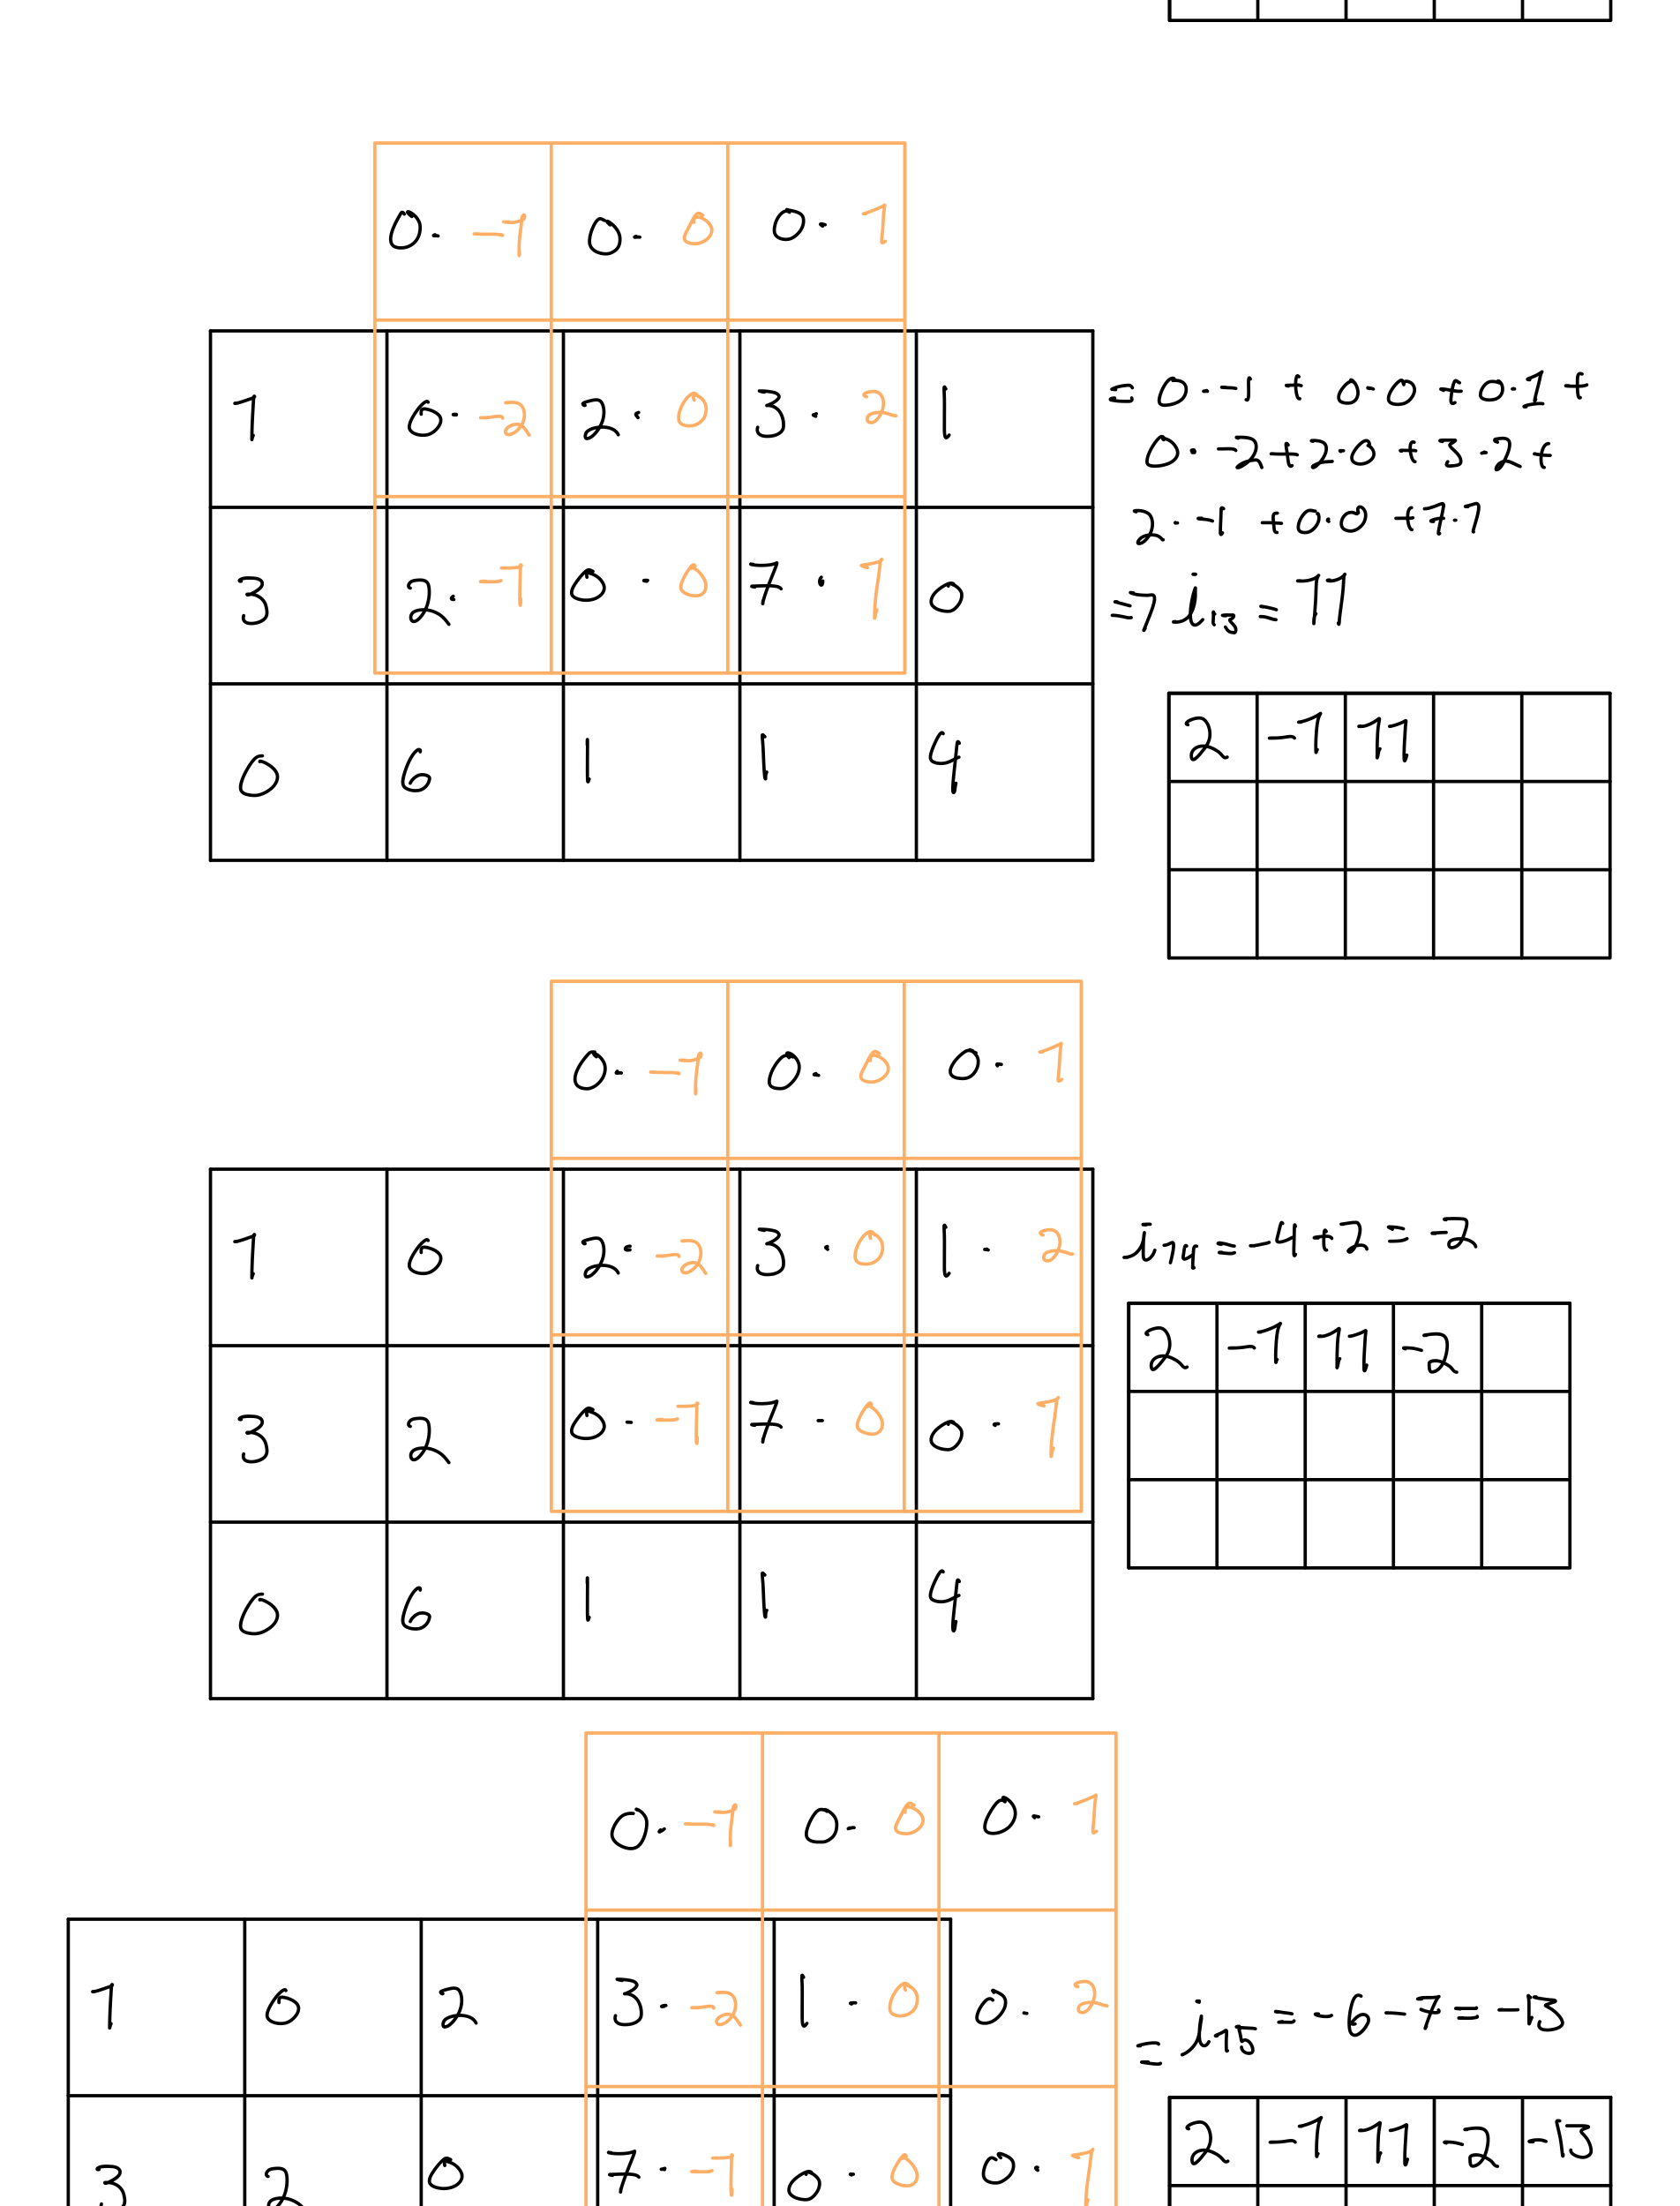 0 · -1 0 · 0 0 · 1
1 0 · -2 2 · 0 3 · 2 1
3 2 · -1 0 · 0 7 · 1 0
0 6 1 1 4
= 0 · -1 + 0 · 0 + 0 · 1 +
0 · -2 + 2 · 0 + 3 · 2 +
2 · -1 + 0 · 0 + 7 · 1
=> i₁₃ = 11
2 -1 11
0 · -1 0 · 0 0 · 1
1 0 2 · -2 3 · 0 1 · 2
3 2 0 · -1 7 · 0 0 · 1
0 6 1 1 4
i₁₄ = -4 + 2 = -2
2 -1 11 -2
0 · -1 0 · 0 0 · 1
1 0 2 3 · -2 1 · 0 0 · 2
3 2 0 7 · -1 0 · 0 0 · 1
= i₁₅ = -6 - 7 = -13
2 -1 11 -2 -13